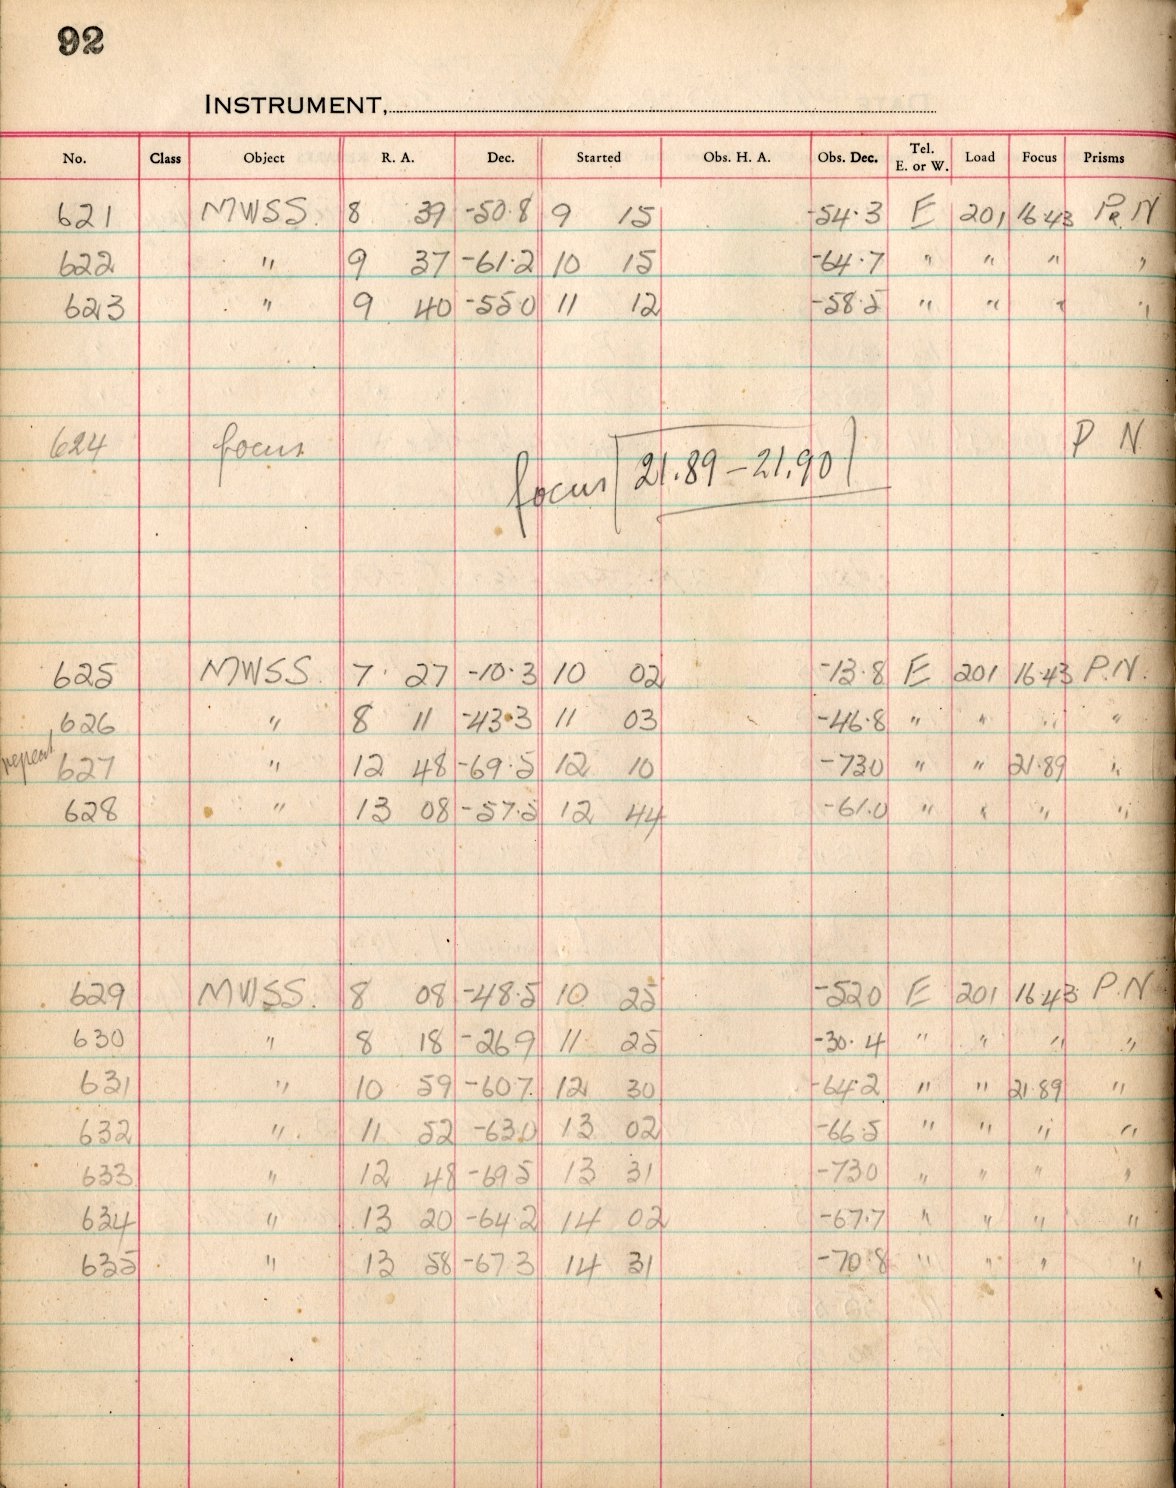 92
INSTRUMENT,
No. Class Object R. A. Dec. Started Obs. H. A. Obs. Dec. Tel. E. or W. Load Focus Prisms
621 MWSS. 8 39 -50.8 9 15 -54.3 E 201 16.43 Pr. N
622 " 9 37 -61.2 10 15 -64.7 " " " "
623 " 9 40 -55 0 11 12 -58.5 " " " "
624 focus P N
focus 21.89 - 21.90
625 MWSS. 7 27 -10.3 10 02 -13.8 E 201 16.43 P.N.
626 " 8 11 -43.3 11 03 -46.8 " " " "
repeat 627 " 12 48 -69.5 12 10 -730 " " 21.89 "
628 " 13 08 -57.5 12 44 -61.0 " " " "
629 MWSS. 8 08 -48.5 10 25 -520 E 201 16.43 P.N
630 " 8 18 -269 11 25 -30.4 " " " "
631 " 10 59 -607. 12 30 -64.2 " " 21.89 "
632 " 11 52 -630 13 02 -66.5 " " " "
633 " 12 48 -695 13 31 -730 " " " "
634 " 13 20 -64.2 14 02 -67.7 " " " "
635 " 13 58 -67 3 14 31 -70.8 " " " "